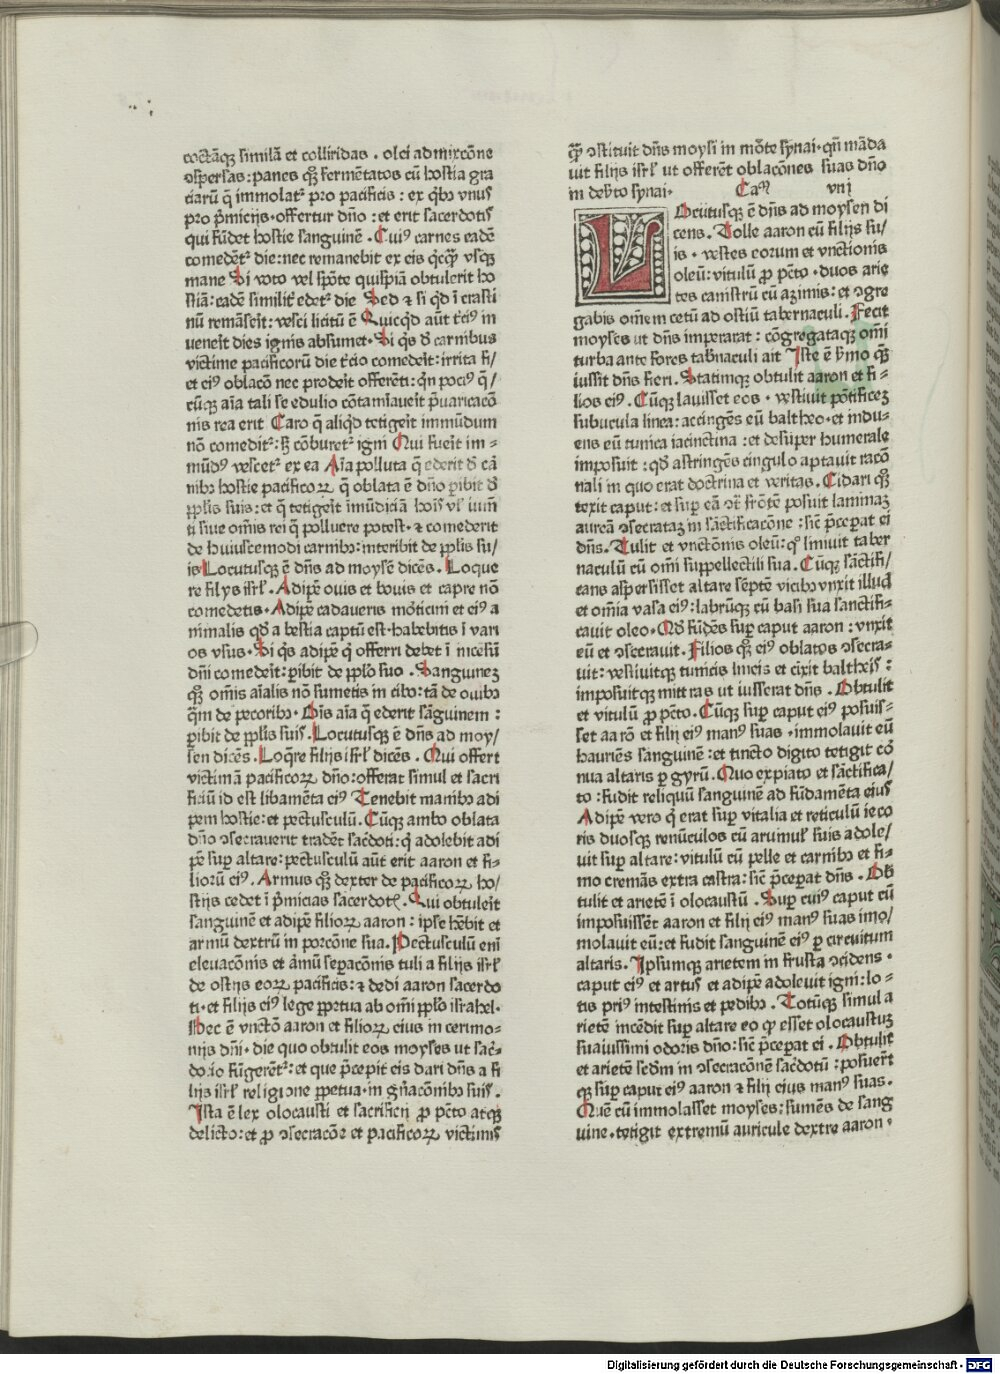 coctãqꝫ similã et colliridas . olei admixcõne
ↄspersas: panes qꝫ fermẽtatos cũ hostia gra
ciarũ q̃ immolat᷑ pro pacificis : ex qͥbꝫ vnus
pro p̃micijs · offertur dño : et erit sacerdotis
qui fũdet hostie sanguinẽ . Cuiꝰ carnes eadẽ
comedẽt᷑ die: nec remanebit ex eis qͥcqͣꝫ vsqꝫ
mane Si voto vel spõte quispiã obtulerit ho
stiã: eadẽ similit᷑ edet᷑ die Sed ⁊ si qͥd ĩ crasti
nũ remãserit: vesci licitũ ẽ Quicqͥd aũt t̾ciꝰ in
veneĩt dies ignis absumet . Si qͥs ð carnibus
victime pacificorũ die t̾cio comedeĩt: irrita fi/
et eiꝰ oblacõ nec prodeĩt offerẽti: qͥn pociꝰ q̃/
cũqꝫ aĩa tali se edulio cõtamĩaveĩt p̃varicacõ
nis rea erit Caro q̃ aliqͥd tetigeĩt immũdum
nõ comedit᷑: sꝫ cõburet᷑ igni Qui fueĩt im =
mũdꝰ vescet᷑ ex ea Aĩa polluta q̃ ederit ð cã
nibꝫ hostie pacificoꝝ q̃ oblata ẽ dño ꝑibit ð
pp̃lis suis: et q̃ tetigeĩt imũdiciã hoĩs vl̾ ium̃
ti siue om̃is rei q̃ polluere potest · ⁊ comederit
de huiuscemodi carnibꝫ: interibit de pp̃lis su/
is Locutusqꝫ ẽ dñs ad moysẽ dicẽs . Loque
re filijs isr̃l . Adipẽ ovis et bovis et capre nõ
comedetis · Adipẽ cadaveris mõticini et eiꝰ a
nimalis qd̾ a bestia captũ est · habebitis ĩ vari
os vsus · Si qͥs adipẽ q̃ offerri debet ĩ incẽsũ
dñi comedeĩt: ꝑibit de pp̃lo suo . Sanguineꝫ
qꝫ om̃is aĩalis nõ sumetis in cibo: tã de ovibꝫ
qͣm de pecoribꝫ · Oĩs aĩa q̃ ederit sãguinem :
ꝑibit de pp̃lis suis . Locutusqꝫ ẽ dñs ad moy/
sen dicẽs . Loqͣre filijs isr̃l dicẽs . Qui offert
victimã pacificoꝝ dño: offerat simul et sacri
ficiũ id est libamẽta eiꝰ Tenebit manibꝫ adi
pem hostie: et pectusculũ . Cũqꝫ ambo oblata
dño ↄsecraverit tradẽt sac̾doti: qͥ adolebit adi
pẽ sup altare: pectusculũ aũt erit aaron et fi=
liorũ eiꝰ . Armus qꝫ dexter de pacificoꝝ ho/
stijs cedet ĩ p̃micias sacerdotꝭ . Qui obtuleĩt
sanguinẽ et adipẽ filioꝝ aaron : ipse hẽbit et
armũ dextrũ in porcõne sua . Pectusculũ eni
elevacõnis et armũ sepacõnis tuli a filijs isr̃l
de ostijs eoꝝ pacificis: ⁊ dedi aaron sacerdo
ti · et filijs eiꝰ lege ppetua ab om̃i pp̃lo israhel .
Hec ẽ vnctõ aaron et filioꝝ eius in cerimo=
nijs dñi · die quo obtulit eos moyses ut sac̾=
docio fũgerẽt᷑: et que p̃cepit eis dari dñs a fi
lijs isr̃l religione ppetua · in gñacõnibꝫ suis .
Ista ẽ lex olocausti et sacrificij ꝓ pcc̃to atqꝫ
delicto: et ꝓ ↄsecracõe et pacificoꝝ victimis
qͣꝫ ↄstituit dñs moysi in mõte synai · qñ mãda
uit filijs isr̃l ut offerẽt oblacõnes suas dño
in deserto synai · Caᵐ viij
LOcutusqꝫ ẽ dñs ad moysen di
cens . Tolle aaron cũ filijs su/
is · vestes eorum et vnctionis
oleũ: vitulũ ꝓ pcc̃to · duos arie
tes canistrũ cũ azimis: et ↄgre
gabis om̃em cetũ ad ostiũ tabernaculi . Fecit
moyses ut dñs imperarat : cõgregataqꝫ om̃i
turba ante fores tab̾naculi ait Iste ẽ s̾mo quẽ
iussit dñs fieri . Statimqꝫ obtulit aaron et fi=
lios eiꝰ . Cũqꝫ lavisset eos · vestivit põtificeꝫ
subucula linea: accingẽs eũ baltheo · et indu=
ens eũ tunica iacinctina : et desuper humerale
imposuit : qd̾ astringẽs cingulo aptavit racõ
nali in quo erat doctrina et veritas . Cidari qꝫ
texit caput: et sup eã ↄᷓ frõtẽ posuit laminaꝫ
aureã ↄsecrataꝫ in sãctificacõne : sic̃ p̃cepat ei
dñs . Tulit et vnctõnis oleũ: qͦ linivit taber
naculũ cũ om̃i suppellectili sua . Cũqꝫ sãctifi=
cans asp̃ersisset altare septẽ vicibꝫ vnxit illud
et om̃ia vasa eiꝰ: labrũqꝫ cũ basi sua sanctifi=
cavit oleo · Qd̾ fũdẽs sup caput aaron : vnxit
eũ et ↄsecravit . Filios qꝫ eiꝰ oblatos ↄsecra=
vit: vestivitqꝫ tunicis lineis et cinxit baltheis :
imposuitqꝫ mittras ut iusserat dñs . Obtulit
et vitulũ ꝓ pcc̃to . Cũqꝫ sup caput eiꝰ posuis=
set aarõ et filij eiꝰ manꝰ suas · immolavit eũ
hauriẽs sanguinẽ : et tincto digito tetigit cõ
nua altaris p gyrũ . Quo expiato et sãctifica/
to : fudit reliquũ sanguinẽ ad fũdamẽta eius
Adipẽ vero qͥ erat sup vitalia et reticulũ ieco
ris duosqꝫ renũculos cũ arvinul̾ suis adole/
vit sup altare: vitulũ cũ pelle et carnibꝫ et fi=
mo cremãs extra castra: sic̃ p̃cepat dñs . Ob
tulit et arietẽ ĩ olocaustũ . Sup cuiꝰ caput cũ
imposuissẽt aaron et filij eiꝰ manꝰ suas imo/
molavit eũ: et fudit sanguinẽ eiꝰ p circvitum
altaris . Ipsumqꝫ arietem in frusta ↄcidens ·
caput eiꝰ et artus et adipẽ adolevit igni: lo=
tis priꝰ intestinis et pedibꝫ . Totũqꝫ simul a
rietẽ incẽdit sup altare eo qꝙ esset olocaustuꝫ
suavissimi odoris dño: sic̃ p̃cepat ei . Obtulit
et arietẽ secdm in ↄsecracõnẽ sac̾dotũ : posuer̃t
qꝫ sup caput eiꝰ aaron ⁊ filij eius manꝰ suas .
Quẽ cũ immolasset moyses: sumẽs de sang
vine · tetigit extremũ auricule dextre aaron ·
Digitalisierung gefördert durch die Deutsche Forschungsgemeinschaft - DFG